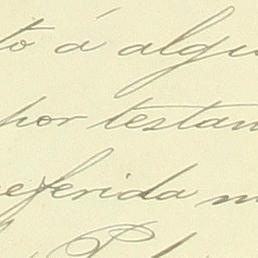 to á algu
por testam
referida m